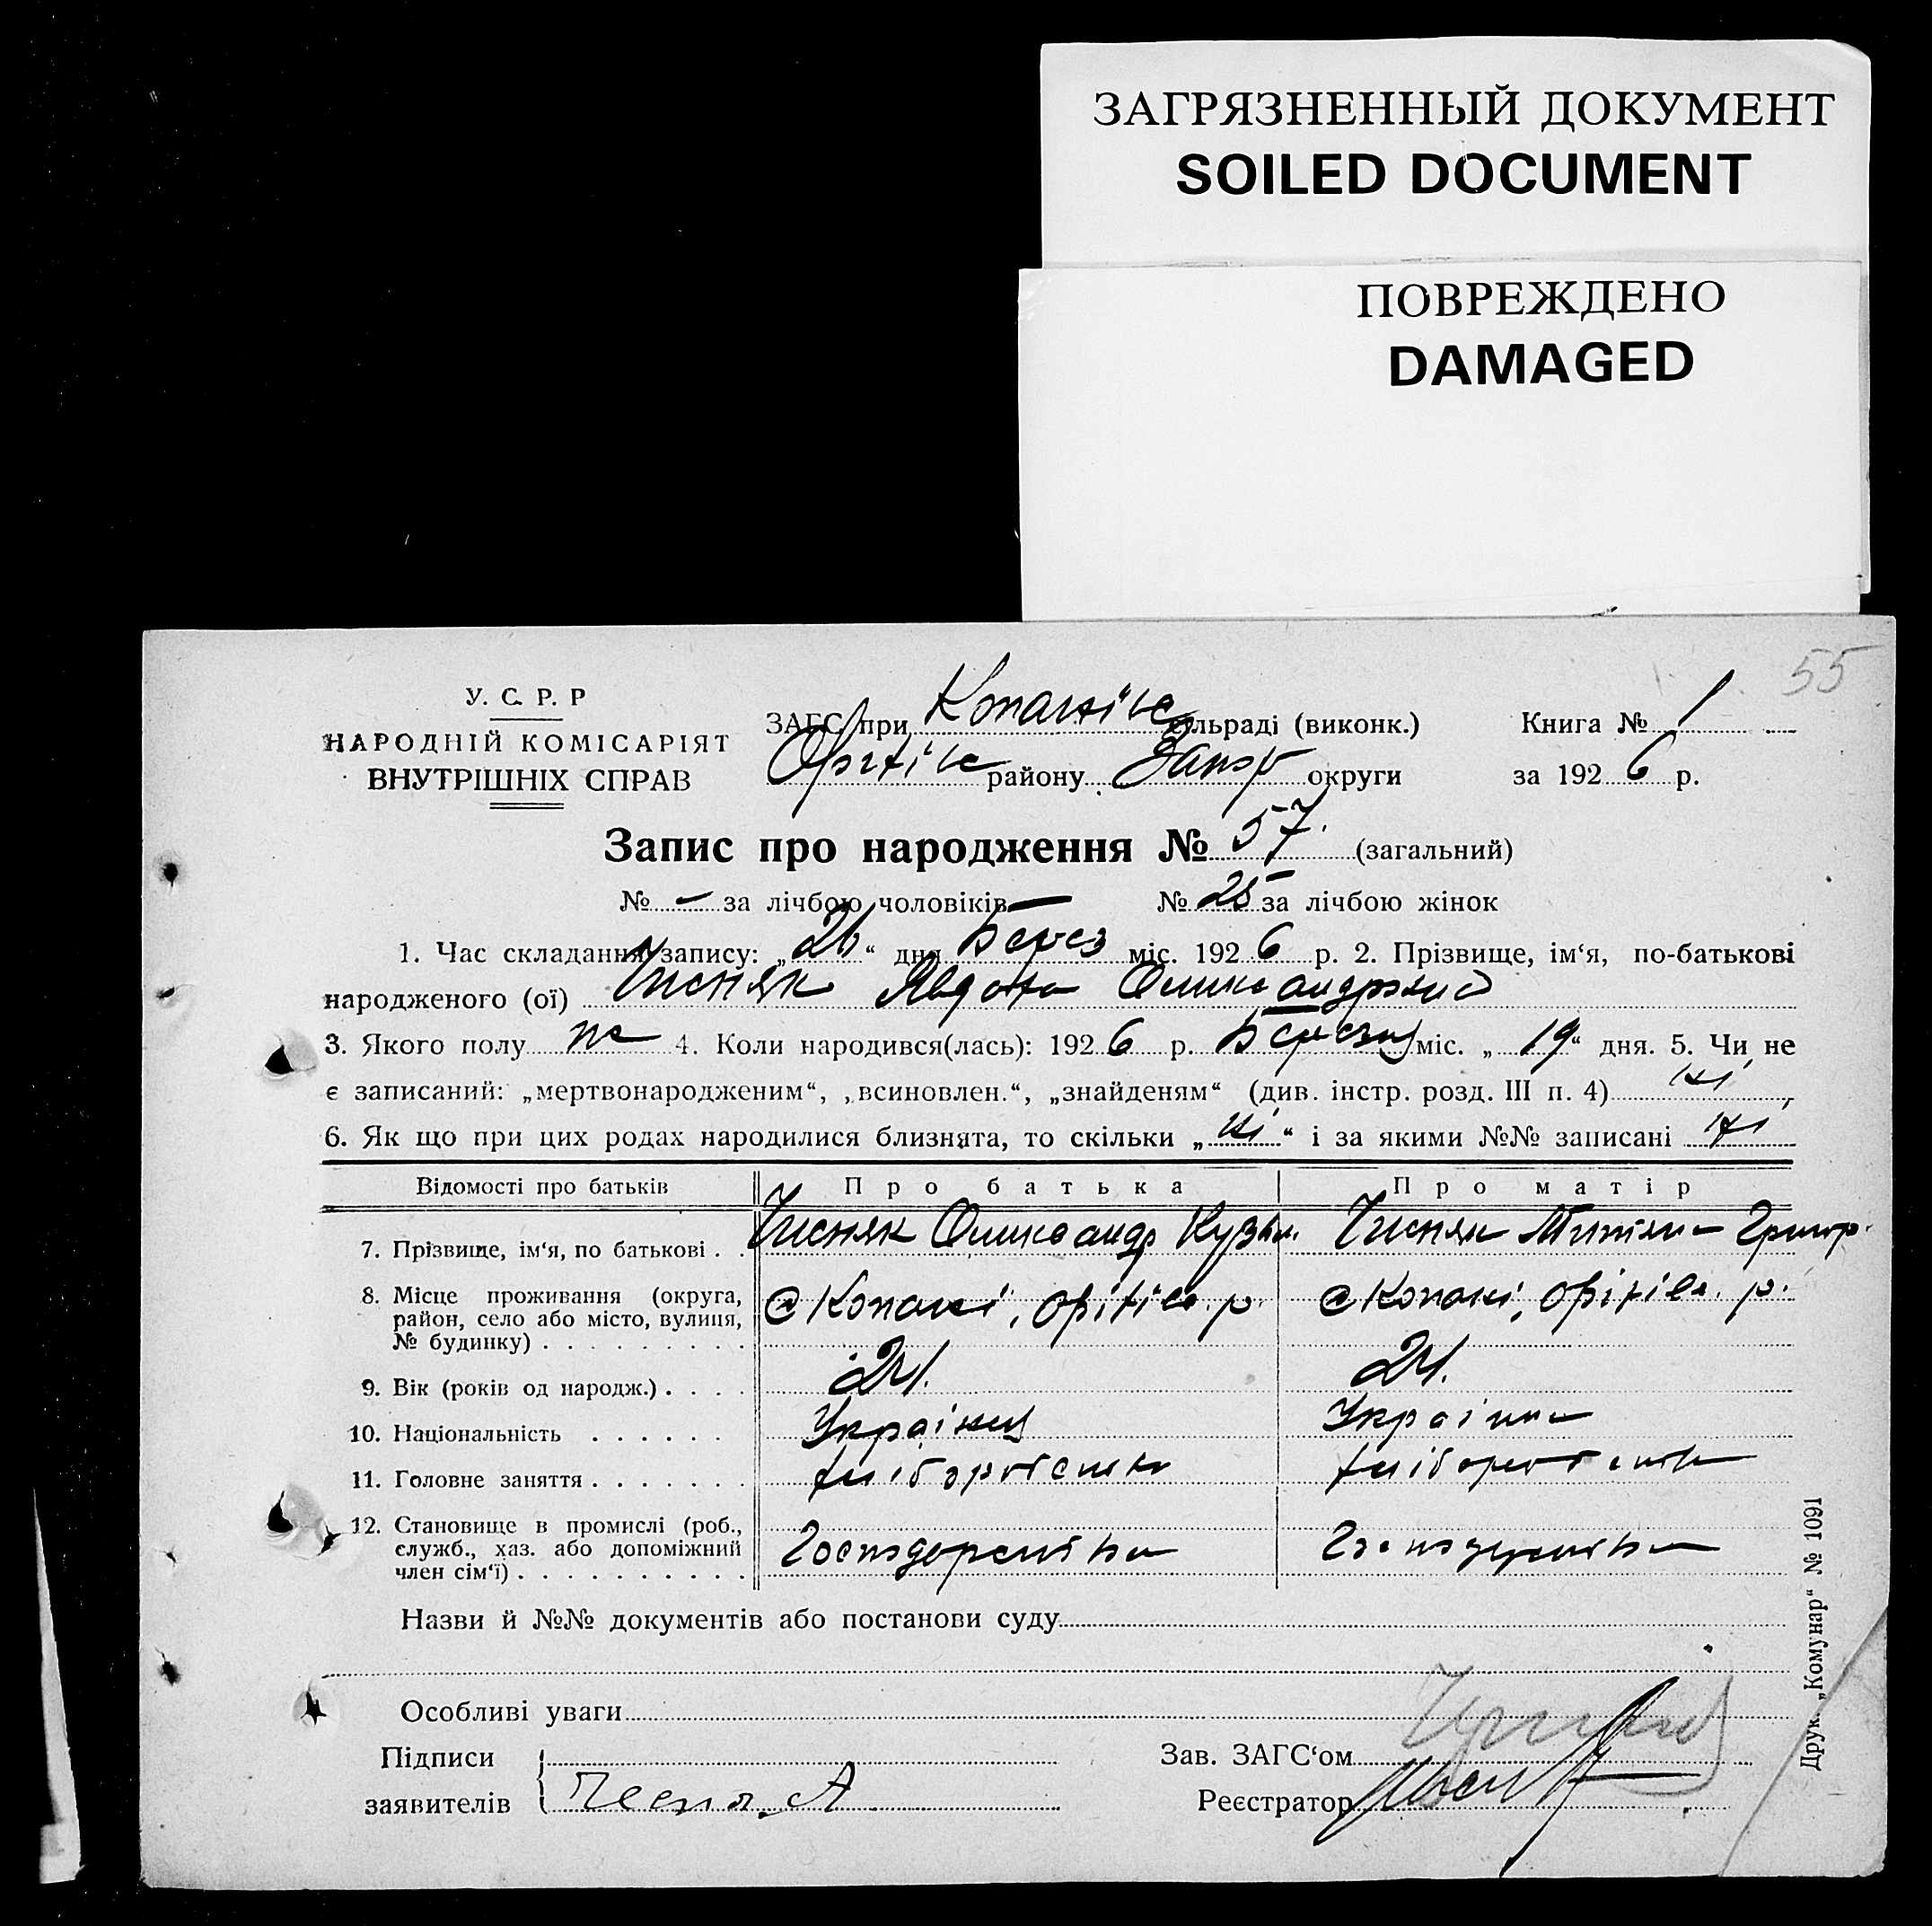 ЗАГРЯЗНЕННЫЙ ДОКУМЕНТ
SOILED DOCUMENT
ПОВРЕЖДЕНО
DAMAGED
55
У. С. Р. Р
НАРОДНІЙ КОМІСАРІЯТ
ВНУТРІШНІХ СПРАВ
ЗАГС при Копанів сільраді (виконк.) Книга № 1
Оріхів району Запор округи за 1926 р.
Запис про народження № 57. (загальний)
№ – за лічбою чоловіків – № 25 за лічбою жінок
1. Час складання запису: „26“ дня Берез міс. 1926 р. 2. Прізвище, ім‘я, по-батькові
народженого (ої) Чисняк Явдоха
3. Якого полу ж 4. Коли народився(лась): 1926 р. Березня міс. „19“ дня. 5. Чи не
є записаний: „мертвонародженим“, „всиновлен.“, „знайденям“ (див. інстр. розд. III п. 4) ні
6. Як що при цих родах народилися близнята, то скільки „ні“ і за якими №№ записані ні
Відомості про батьків Про батька Про матір
7. Прізвище, ім‘я, по батькові . . Чисняк Олександр Кузьм. Чисняк Григор.
8. Місце проживання (округа,
район, село або місто, вулиця,
№ будинку) . . . . . . . . . с Копані, Оріхів. р. с Копані, Оріхів. р.
9. Вік (років од народж.) . . . . 24. 24.
10. Національність . . . . . . Українец Українка
11. Головне заняття . . . . . . . хліборобство хліборобство
12. Становище в промислі (роб.,
служб., хаз. або допоміжний
член сім‘ї) . . . . . . . . . . Господарства Господарства
Назви й №№ документів або постанови суду
Особливі уваги
Підписи
заявителів А
Зав. ЗАГС‘ом
Реєстратор
Друк. „Комунар“ № 1091